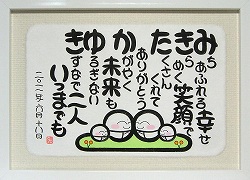 みちあふれる幸せ
きらめく笑顔で
たくさんくれて
ありがとう
かがやく未来も
ゆるぎない
きずなで二人
いつまでも